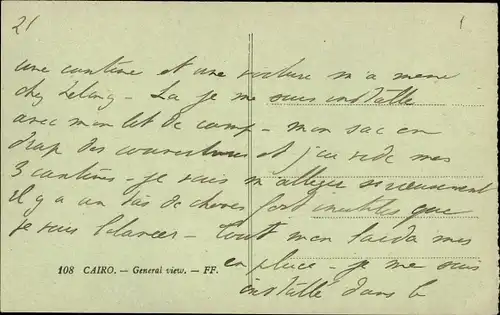 21
1
une cantine et une voiture m'a mené
chez – Là je me suis installé
avec mon lit de camp – mon sac en
drap des couvertures et j'ai vidé mes
3 cantines – je vais m'alléger sérieusement
il y a un tas de choses fort inutiles que
je vais balancer – Tout mon mes
108 CAIRO. — General view. — FF.
en place – je me suis
installé dans le